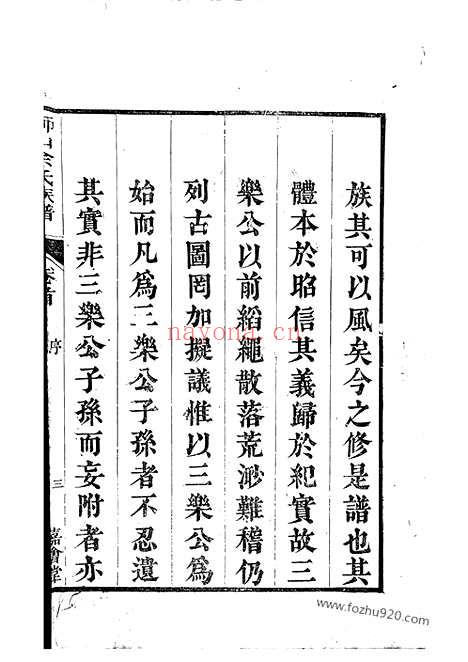 族其可以風矣今之修是譜也其
體本於昭信其義歸於紀實故三
樂公以前縚繩散落荒渺難稽仍
列古圖罔加擬議惟以三樂公爲
始而凡爲三樂公子孫者不忍遺
其實非三樂公子孫而妄附者亦
余氏族譜
卷首
序
三
嘉會堂
nayona.cn
www.fozhu920.com